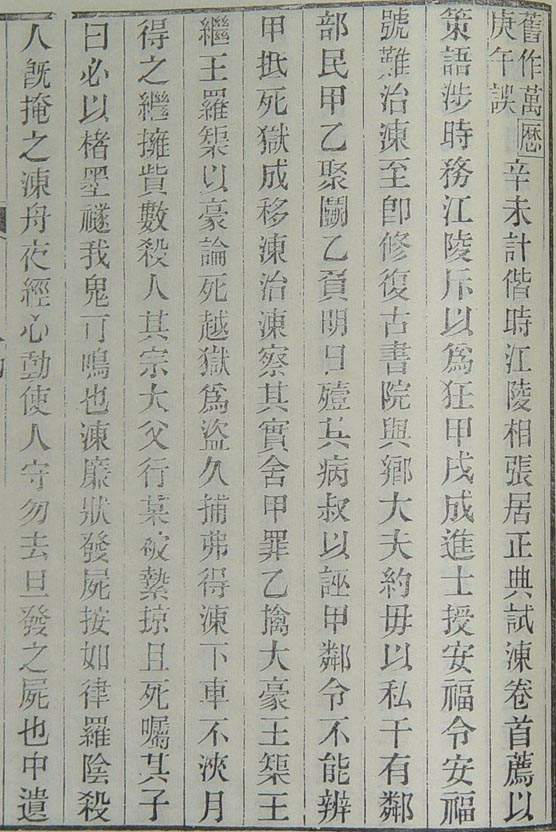 舊作萬曆
庚午誤
辛未計偕時江陵相張居正典試涷卷首薦以
策語涉時務江陵斥以爲狂甲戌成進士授安福令安福
號難治涷至卽修復古書院與鄉大夫約毋以私干有鄰
部民甲乙聚鬬乙負明日殪其病叔以誣甲鄰令不能辨
甲抵死獄成移涷治涷察其實舍甲罪乙擒大豪王槊王
繼王羅槊以豪論死越獄爲盜久捕弗得涷下車不浹月
得之繼擁貲數殺人其宗大父行某被縶掠且死囑其子
曰必以楮墨襚我鬼可鳴也涷廉狀發屍按如律羅陰殺
人旣掩之涷舟夜經心動使人守勿去旦發之屍也中遺